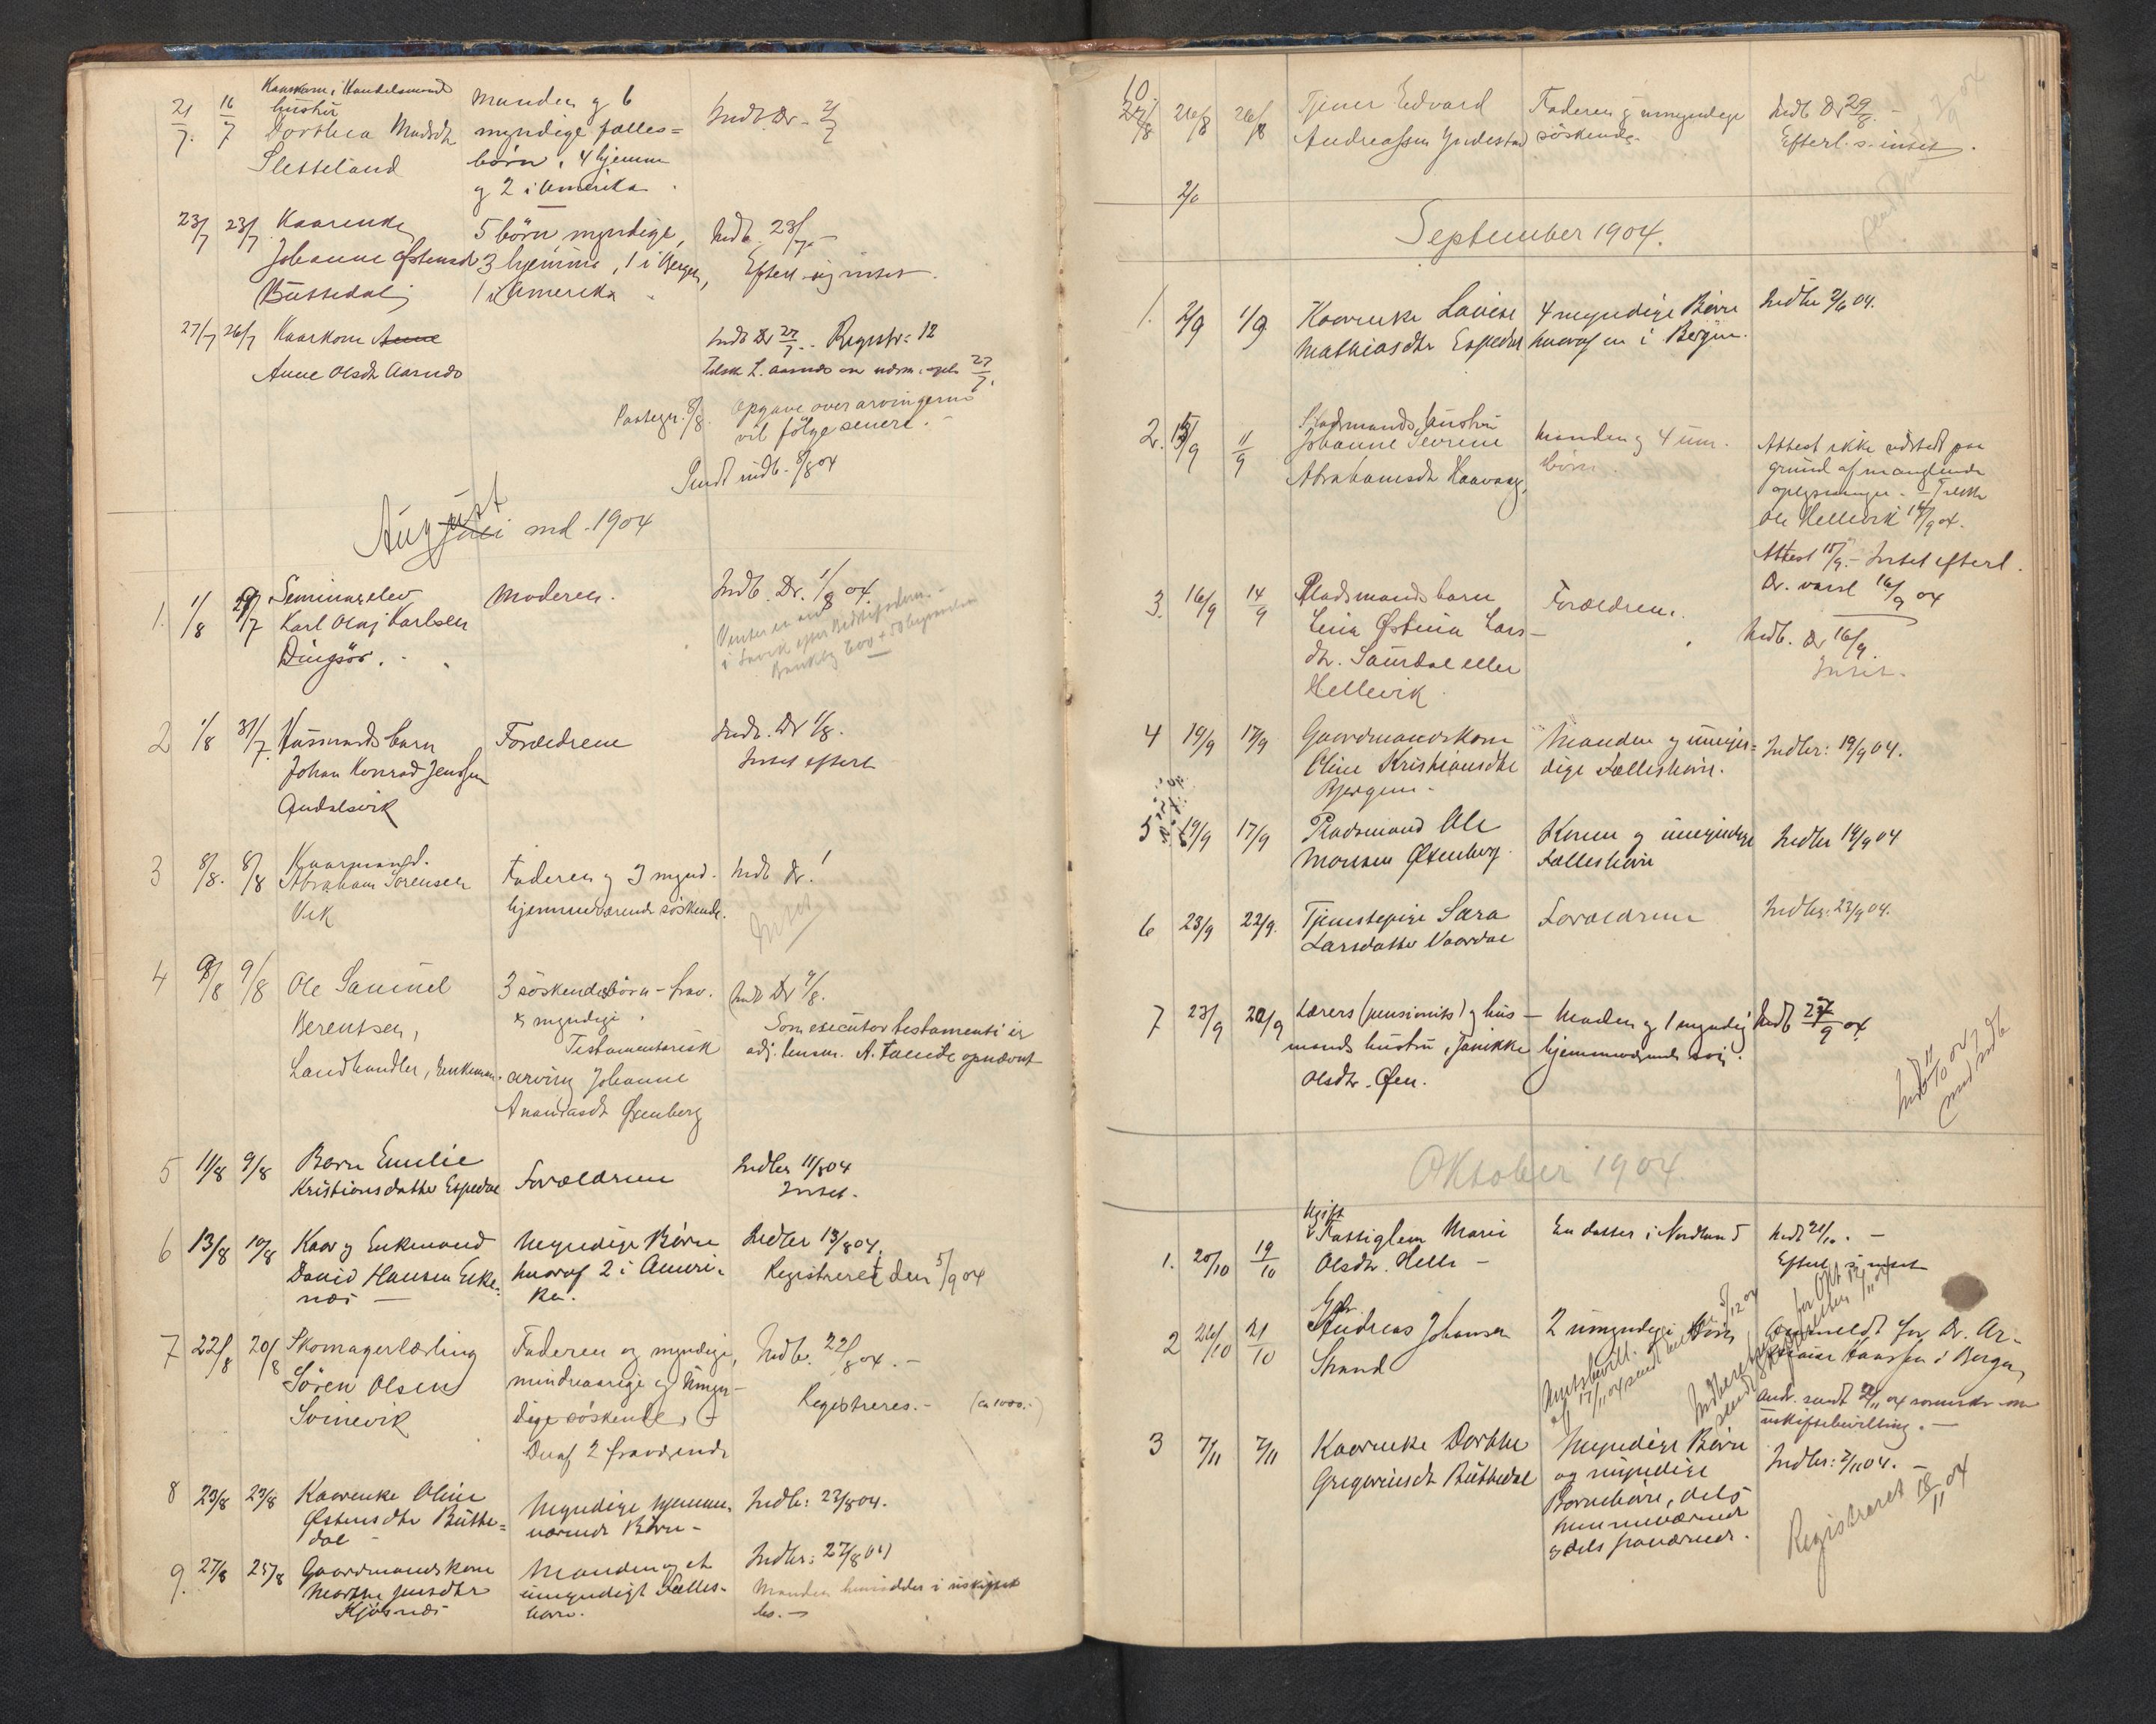 21/7. 16/7 Kaarkone, Handelsmands
hustru
Dorthea Madsdtr
Sletteland
Manden og 6
myndige fælles=
børn, 4 hjemme
og 2 i Amerika.
Indb. Dr. 21/7
23/7 23/7 Kaarenke
Johanne Østensdtr
Buttedal
5 børn, myndige,
3 hjemme, 1 i Bergen,
1 i Amerika.
Indb. 23/7. –
Efterl. sig intet.
27/7 26/7 Kaarkone Anne
Anne Olsdtr Aarnes
Indb Dr 27/7.. Registr= 12
27/7.
Paategn. 8/8. Opgave over arvingerne
vil følge senere.
Sendt indb. 8/8 04
August
Juli md. 1904
1. 1/8 29/7 Seminarelev
Karl Olaj Karlsen
Dingsør.
Moderen.
Indb. Dr. 1/8 04.
2 1/8 31/7. Husmandsbarn
Johan Konrad Jenssen
Aadalsvik
Forældrene
Indb. Dr 1/8.
Intet efterl
3 8/8. 8/8 Kaarmand.
Abraham Sørensen
Vik
Faderen og 3 mynd.
hjemmeværende søskende.
Indb Dr. !
Intet
4 9/8 9/8 Ole Samuel
Berentsen,
Landhandler, Enkeman.
3 søskendebørn – frav.
& myndige.
Testamentarisk
arving Johanne
Ananiasdtr Øxenberg
Indb Dr 9/8.
Som executor testamenti er
adj. lensm. A. Takle opnævnt
5 11/8 9/8 Barn Emilie
Kristiansdatter Espedal
Forældrene
Indber 11/8 04
Intet.
6 13/8 10/8 Kaar og Enkemand
David Hansen Eke-
næs –
Myndige Børn
hvoraf 2 i Ameri-
ka.
Indber 13/8 04.
Registreret den 5/9 04
7 22/8 20/8 Skomagerlærling
Søren Olsen
Svinevik
Faderen og myndige,
mindreaarige og umyn-
dige søskende, –
Deraf 2 fraværende
Indb. 22/8 04. –
Registreres. – (ca 1000.-)
8 23/8 23/8 Kaarenke Oline
Østensdtr Butte=
dal –
Myndige hjemme-
værende Børn –
Indb: 23/8 04.
9. 27/8 25/8 Gaardmandskone
Marthe Jensdtr
Kjøsnæs
Manden og et
umyndigt Fælles-
barn.
Indber: 27/8 04
Manden hensidder i uskiftet
bo. –
10.
27/8 26/8 26/8 Tjener Edvard
Andreassen Yndestad
Faderen & umyndige
søskende.
Indb Dr 29/8. –
Efterl. s. intet.
2/9
September 1904.
1. 2/9 1/9 Kaarenke Lovise
Mathiasdtr Espedal
4 myndige Børn
hvoraf en i Bergen.
Indber 2/9 04.
2. 15/9 11/9 Pladsmands hustru
Johanne Severine
Abrahamsdtr Haavaag,
Manden og 4 um.
børn.
Attest ikke udstedt paa
grund af manglende
oplysninger. –
Ole Hellevik 14/9 04.
Attest 15/9. – Intet efterl.
Dr. varsl 16/9 04
3. 16/9 14/9 Pladsmandsbarn
Lina Østina Lars-
dtr. Saurdal eller
Hellevik.
Forældrene.
Indb. Dr 16/9.
Intet.
4 19/9 17/9 Gaardmandskone
Oline Kristiansdtr
Bjergum –
Manden og umyn=
dige Fællesbørn.
Indber: 19/9 04.
5 19/9 17/9 Pladsmand Ole
Monsen Øxenberg
Konen og umyndige
Fællesbørn
Indber 19/9 04
6 23/9 22/9. Tjenestepige Sara
Larsdatter Vaardal
Forældrene
Indber: 23/9 04.
7 23/9 20/9 Lærers (pensionists) og hus-
mands hustru, Janikke
Olsdtr. Øen.
Manden og 1 myndig
hjemmeværende søn.
Indb 27/9 04.
Indb 11/10 04
Oktober 1904.
1. 20/10 19/10 Ugift
Fattiglem Marie
Olsdtr. Helle –
En datter i Nordland
Indb 21/10. –
Efterl s intet
2 26/10 21/10 Gbr.
Andreas Johansen
Strand
2 umyndige Børn
Anmeldt for Dr. Ar-
Hanssen i Bergen
uskiftebevilling. –
3 7/11 7/11 Kaarenke Dorthe
Gregoriusdtr Buttedal
Myndige Børn
og myndige
Børnebørn, dels
hjemmeværende
& dels fraværende.
Indber: 7/11 04. –
Registreret 18/11 04